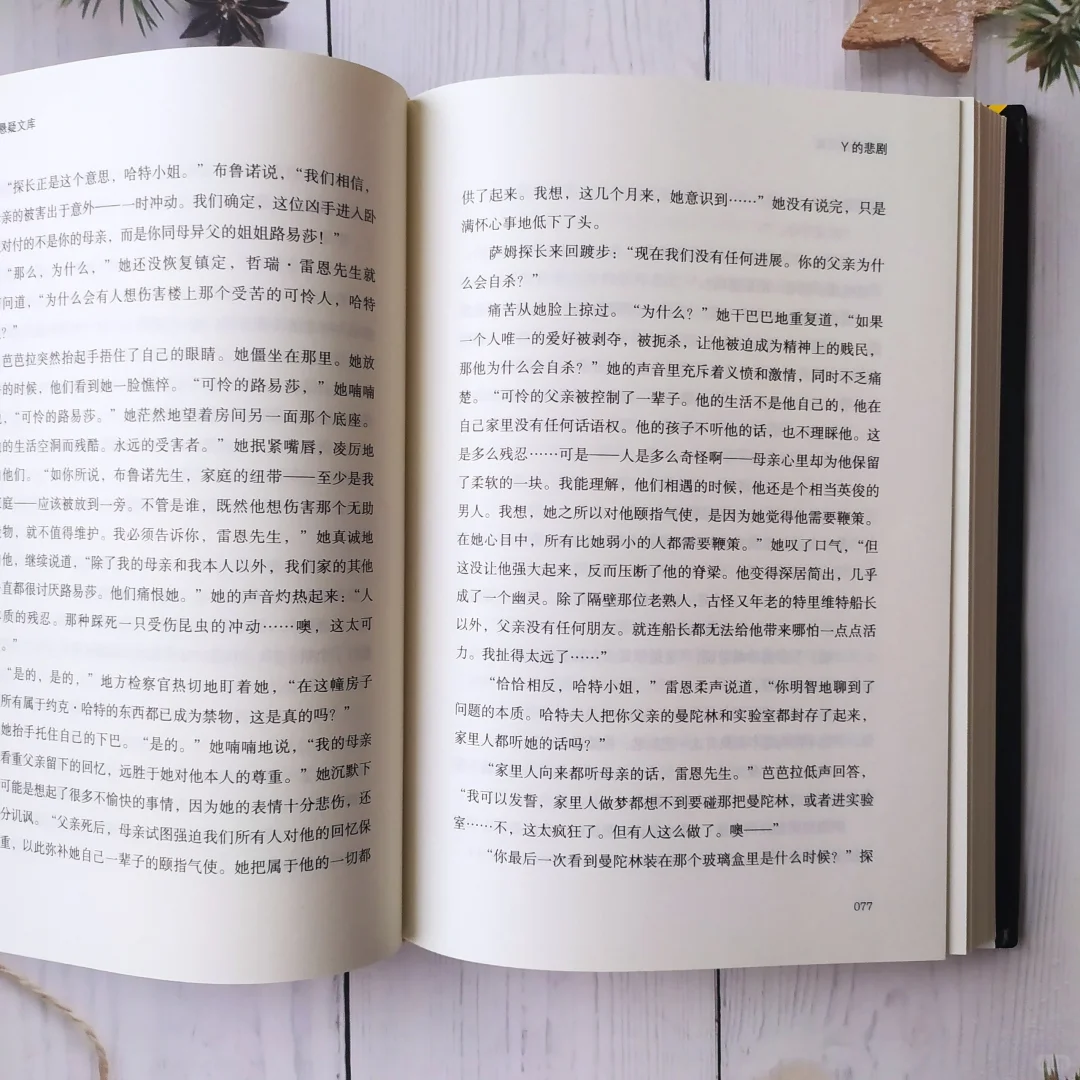 悬疑文库
“探长正是这个意思，哈特小姐。”布鲁诺说，“我们相信，
亲的被害出于意外——一时冲动。我们确定，这位凶手进入卧
对付的不是你的母亲，而是你同母异父的姐姐路易莎！”
“那么，为什么，”她还没恢复镇定，哲瑞·雷恩先生就
问道，“为什么会有人想伤害楼上那个受苦的可怜人，哈特
？”
芭芭拉突然抬起手捂住了自己的眼睛。她僵坐在那里。她放
的时候，他们看到她一脸憔悴。“可怜的路易莎，”她喃喃
，“可怜的路易莎。”她茫然地望着房间另一面那个底座。
的生活空洞而残酷。永远的受害者。”她抿紧嘴唇，凌厉地
他们。“如你所说，布鲁诺先生，家庭的纽带——至少是我
家庭——应该被放到一旁。不管是谁，既然他想伤害那个无助
物，就不值得维护。我必须告诉你，雷恩先生，”她真诚地
他，继续说道，“除了我的母亲和我本人以外，我们家的其他
直都很讨厌路易莎。他们痛恨她。”她的声音灼热起来：“人
质的残忍。那种踩死一只受伤昆虫的冲动……噢，这太可
。”
“是的，是的，”地方检察官热切地盯着她，“在这幢房子
所有属于约克·哈特的东西都已成为禁物，这是真的吗？”
她抬手托住自己的下巴。“是的。”她喃喃地说，“我的母亲
看重父亲留下的回忆，远胜于她对他本人的尊重。”她沉默下
可能是想起了很多不愉快的事情，因为她的表情十分悲伤，还
分讥讽。“父亲死后，母亲试图强迫我们所有人对他的回忆保
重，以此弥补她自己一辈子的颐指气使。她把属于他的一切都
Y的悲剧
供了起来。我想，这几个月来，她意识到……”她没有说完，只是
满怀心事地低下了头。
萨姆探长来回踱步：“现在我们没有任何进展。你的父亲为什
么会自杀？”
痛苦从她脸上掠过。“为什么？”她干巴巴地重复道，“如果
一个人唯一的爱好被剥夺，被扼杀，让他被迫成为精神上的贱民，
那他为什么会自杀？”她的声音里充斥着义愤和激情，同时不乏痛
楚。“可怜的父亲被控制了一辈子。他的生活不是他自己的，他在
自己家里没有任何话语权。他的孩子不听他的话，也不理睬他。这
是多么残忍……可是——人是多么奇怪啊——母亲心里却为他保留
了柔软的一块。我能理解，他们相遇的时候，他还是个相当英俊的
男人。我想，她之所以对他颐指气使，是因为她觉得他需要鞭策。
在她心目中，所有比她弱小的人都需要鞭策。”她叹了口气，“但
这没让他强大起来，反而压断了他的脊梁。他变得深居简出，几乎
成了一个幽灵。除了隔壁那位老熟人，古怪又年老的特里维特船长
以外，父亲没有任何朋友。就连船长都无法给他带来哪怕一点点活
力。我扯得太远了……”
“恰恰相反，哈特小姐，”雷恩柔声说道，“你明智地聊到了
问题的本质。哈特夫人把你父亲的曼陀林和实验室都封存了起来，
家里人都听她的话吗？”
“家里人向来都听母亲的话，雷恩先生。”芭芭拉低声回答，
“我可以发誓，家里人做梦都想不到要碰那把曼陀林，或者进实验
室……不，这太疯狂了。但有人这么做了。噢——”
“你最后一次看到曼陀林装在那个玻璃盒里是什么时候？”探
077